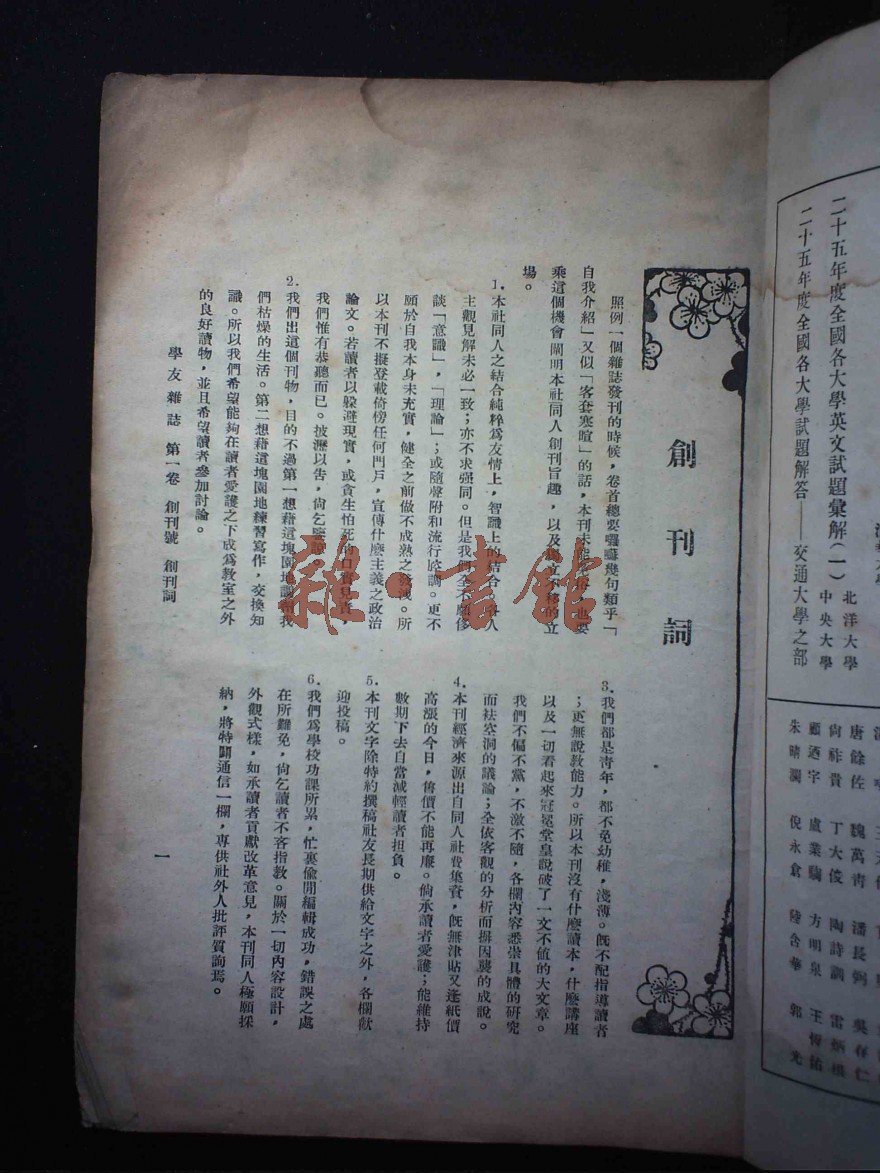 創刊詞
照例一個雜誌發刊的時候，卷首總要囉囌幾句類乎「
自我介紹」又似「客套寒暄」的話，本刊未能免俗，也要
乘這個機會闡明本社同人創刊旨趣，以及獨立不移的立
場。
1.本社同人之結合純粹爲友情上，智識上的結合。各人
主觀見解未必一致；亦不求强同。但是我們全不願侈
談「意識」，「理論」；或隨聲附和流行腔調。更不
願於自我本身未充實，健全之前做不成熟之發洩。所
以本刊不擬登載倚傍任何門戶，宣傳什麽主義之政治
論文。若讀者以躱避現實，或貪生怕死的口實見責，
我們惟有恭聽而已。披瀝以吿，尙乞鑒諒。
2.我們出這個刊物，目的不過第一想藉這塊園地調劑我
們枯燥的生活。第二想藉這塊園地練習寫作，交換知
識。所以我們希望能夠在讀者愛護之下成爲敎室之外
的良好讀物，並且希望讀者參加討論。
3.我們都是靑年，都不免幼稚，淺薄。旣不配指導讀者
；更無說敎能力。所以本刊沒有什麽讀本，什麽講座
以及一切看起來冠冕堂皇說破了一文不値的大文章。
我們不偏不黨，不激不隨，各欄內容悉崇具體的硏究
而袪空洞的議論；全依客觀的分析而摒因襲的成說。
4.本刊經濟來源出自同人社費集資，旣無津貼又逢紙價
高漲的今日，售價不能再廉。倘承讀者愛護；能維持
數期下去自當減輕讀者担負。
5.本刊文字除特約撰稿社友長期供給文字之外，各欄歡
迎投稿。
6.我們爲學校功課所累，忙裏偸閒編輯成功，錯誤之處
在所難免，尙乞讀者不客指敎。關於一切內容設計，
外觀式樣，如承讀者貢獻改革意見，本刊同人極願採
納，將特闢通信一欄，專供社外人批評質詢焉。
學友雜誌 第一卷 創刊號 創刊詞
一
二十五年度全國各大學英文試題彙解(一) 北洋大學 中央大學
二十五年度全國各大學試題解答——交通大學之部
唐餘佐 魏萬靑 潘長弼 吳存仁
尙祚貴 丁大俊 陶詩調 雷炳權
顧迺宇 盧業騊 方明泉 王恆祐
朱晴瀾 倪永倉 陸含華 郭光
雜·書館